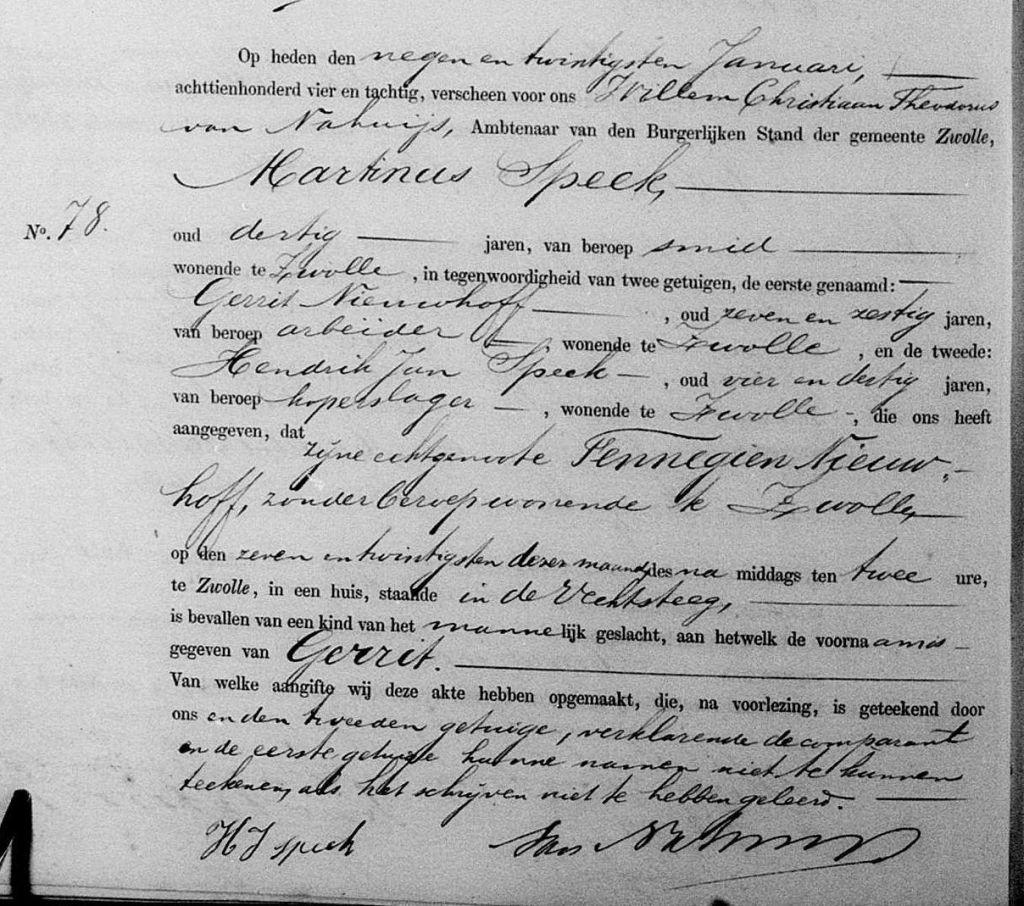 Op heden den negen en twintigsten Januari,
achttienhonderd vier en tachtig, verscheen voor ons Willem Christiaan Theodorus
van Nahuijs, Ambtenaar van den Burgerlijken Stand der gemeente Zwolle,
Martinus Speek,
No. 78.
oud dertig jaren, van beroep smid
wonende te Zwolle, in tegenwoordigheid van twee getuigen, de eerste genaamd:
Gerrit Nieuwhoff, oud zeven en zestig jaren,
van beroep arbeider, wonende te Zwolle, en de tweede:
Hendrik Jan Speek, oud vier en dertig jaren,
van beroep koperslager, wonende te Zwolle, die ons heeft
aangegeven, dat
zijne echtgenoote Fennegien Nieuw-
hoff, zonder beroep wonende te Zwolle,
op den zeven en twintigsten dezer maand, des na middags ten twee ure,
te Zwolle, in een huis, staande in de Vechtsteeg,
is bevallen van een kind van het mannelijk geslacht, aan hetwelk de voornaam is
gegeven van Gerrit.
Van welke aangifte wij deze akte hebben opgemaakt, die, na voorlezing, is geteekend door
ons en den tweeden getuige, verklarende de comparant
en de eerste getuige hunne namen niet te kunnen
teekenen, als het schrijven niet te hebben geleerd.
HJ Speek
van Nahuijs